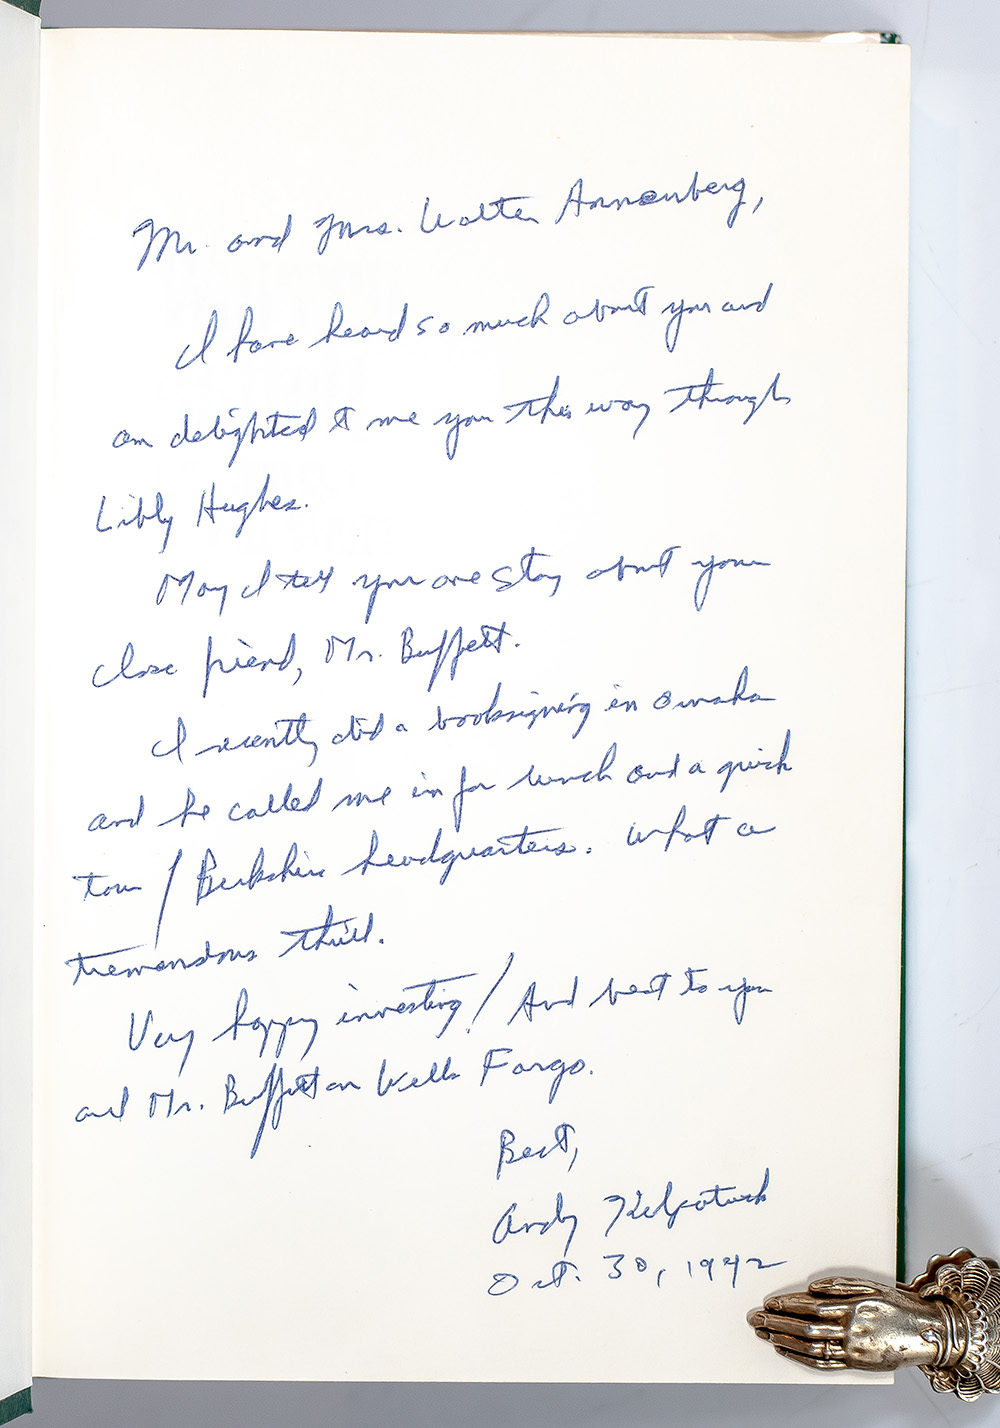 Mr. and Mrs. Walter Annenberg,
I have heard so much about you and
am delighted to me you this way through
Libby Hughes.
May I tell you one story about your
close friend, Mr. Buffett.
I recently did a booksigning in Omaha
and he called me in for lunch and a quick
tour / Berkshire headquarters. What a
tremendous thrill.
Very happy investing! And best to you
and Mr. Buffett on Wells Fargo.
Best,
Andy Kilpatrick
Oct. 30, 1992